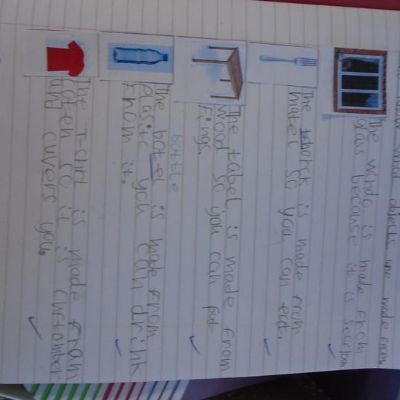 what objects are made from.
The windo is made from
glass because it is
The is made from
matel so you can eat.
The tabel is made from
wood so you can put
Fings.
bottle
The botel is made from
plastic you can drink
From it.
The Tshrt is made From
coten so it is
and cuvers you.